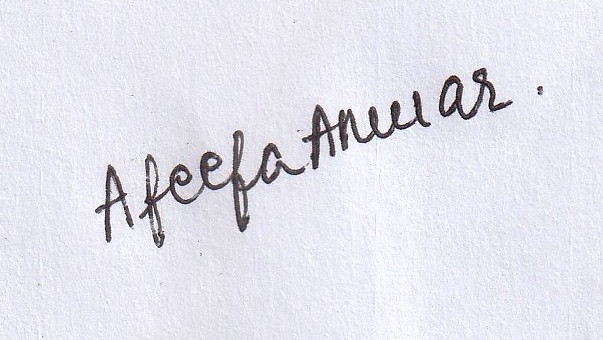 Afeefa Anwar.